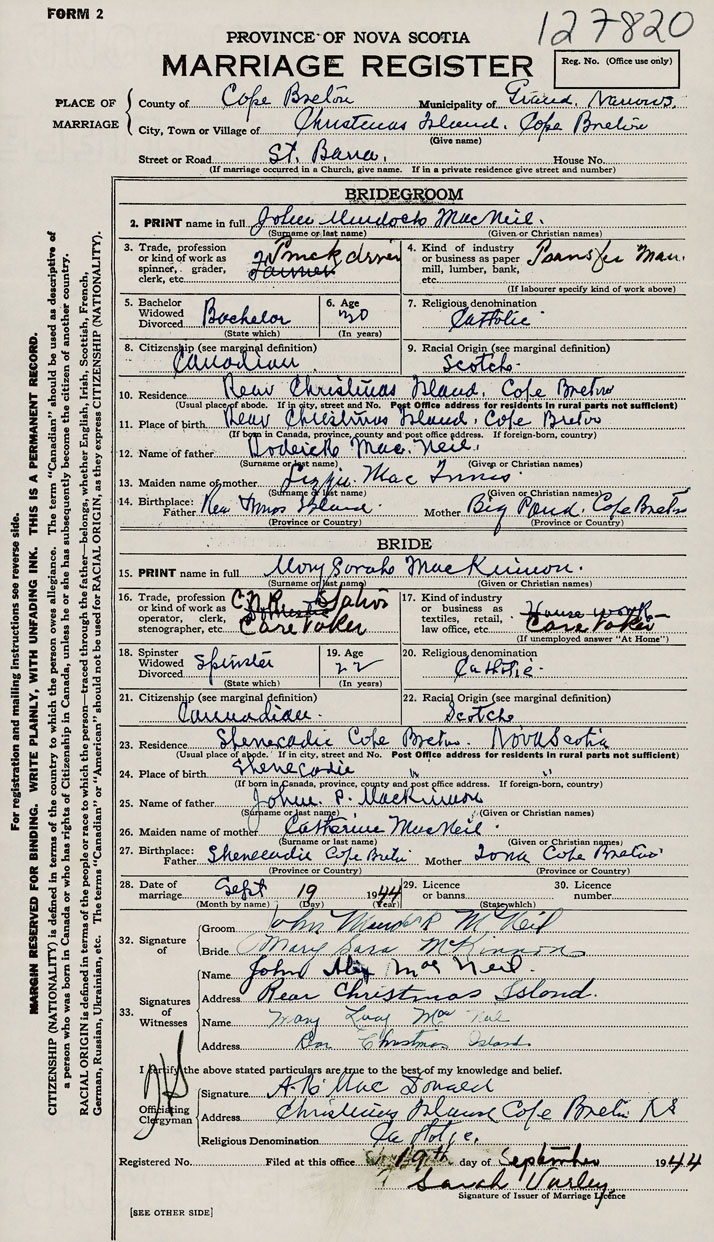 FORM 2
127820
PROVINCE OF NOVA SCOTIA
MARRIAGE REGISTER
Reg. No. (Office use only)
PLACE OF MARRIAGE
County of Cape Breton Municipality of Grand Narrows.
City, Town or Village of Christmas Island. Cape Breton
(Give name)
Street or Road St. Barra. House No.
(If marriage occurred in a Church, give name. If in a private residence give street and number)
BRIDEGROOM
2. PRINT name in full John Murdock MacNeil.
(Surname or last name) (Given or Christian names)
3. Trade, profession or kind of work as spinner, grader, clerk, etc. Truck driver
4. Kind of industry or business as paper mill, lumber, bank, etc. Transfer Man.
(If labourer specify kind of work above)
5. Bachelor Widowed Divorced Bachelor
(State which)
6. Age 30
(In years)
7. Religious denomination
Catholic
8. Citizenship (see marginal definition)
Canadian
9. Racial Origin (see marginal definition)
Scotch
10. Residence Rear Christmas Island, Cape Breton
(Usual place of abode. If in city, street and No. Post Office address for residents in rural parts not sufficient)
11. Place of birth Rear Christmas Island, Cape Breton
(If born in Canada, province, county and post office address. If foreign-born, country)
12. Name of father Roderick Mac Neil.
(Surname or last name) (Given or Christian names)
13. Maiden name of mother Lizzie Mac Innis
(Surname or last name) (Given or Christian names)
14. Birthplace: Father Rear Xmas Island. Mother Big Pond, Cape Breton
(Province or Country) (Province or Country)
BRIDE
15. PRINT name in full Mary Sarah MacKinnon.
(Surname or last name) (Given or Christian names)
16. Trade, profession or kind of work as operator, clerk, stenographer, etc. C.N.R. Station Domestic Care Taker
17. Kind of industry or business as textiles, retail, law office, etc. House work Care Taker
(If unemployed answer "At Home")
18. Spinster Widowed Divorced Spinster
(State which)
19. Age 22
(In years)
20. Religious denomination
Catholic
21. Citizenship (see marginal definition)
Cannadian.
22. Racial Origin (see marginal definition)
Scotch
23. Residence Shenecadie Cape Breton. Nova Scotia
(Usual place of abode. If in city, street and No. Post Office address for residents in rural parts not sufficient)
24. Place of birth Shenecadie " "
(If born in Canada, province, county and post office address. If foreign-born, country)
25. Name of father John. P. MacKinnon
(Surname or last name) (Given or Christian names)
26. Maiden name of mother Catherine MacNeil.
(Surname or last name) (Given or Christian names)
27. Birthplace: Father Shenecadie Cape Breton Mother Iona Cape Breton
(Province or Country) (Province or Country)
28. Date of marriage Sept 19 1944
(Month by name) (Day) (Year)
29. Licence or banns
(State which)
30. Licence number
32. Signature of
Groom John McNeil
Bride Mary Sara McKinnon
33. Signatures of Witnesses
Name John Alex MacNeil.
Address Rear Christmas Island.
Name Mary Lucy MacNeil
Address Rear Christmas Island.
I certify the above stated particulars are true to the best of my knowledge and belief.
Officiating Clergyman
Signature A. R. MacDonald
Address Christmas Island Cape Breton N S
Religious Denomination
Registered No. Filed at this office 19th day of September 1944
Sarah Varley
Signature of Issuer of Marriage Licence
[SEE OTHER SIDE]
For registration and mailing instructions see reverse side.
MARGIN RESERVED FOR BINDING. WRITE PLAINLY, WITH UNFADING INK. THIS IS A PERMANENT RECORD.
CITIZENSHIP (NATIONALITY) is defined in terms of the country to which the person owes allegiance. The term "Canadian" should be used as descriptive of
a person who was born in Canada or who has rights of Citizenship in Canada, unless he or she has subsequently become the citizen of another country.
RACIAL ORIGIN is defined in terms of the people or race to which the person—traced through the father—belongs, whether English, Irish, Scottish, French,
German, Russian, Ukrainian, etc. The terms "Canadian" or "American" should not be used for RACIAL ORIGIN, as they express CITIZENSHIP (NATIONALITY).